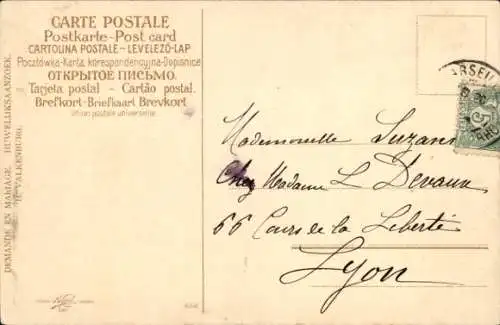 CARTE POSTALE
Postkarte-Post card
CARTOLINA POSTALE-LEVELEZŐ-LAP
Pocztówka-Karta korespondencyjna-Dopisnice
ОТКРЫТОЕ ПИСЬМО.
Tarjeta postal - Cartão postal.
Brefkort-Briefkaart Brevkort
Union postale universelle.
DEMANDE EN MARIAGE. HUWELIJKSAANZOEK.
H. VALKENBURG.
ARSEI
5
Mademoiselle Suzan
Chez Madame L Devaux
66 Cours de la Liberté
Lyon